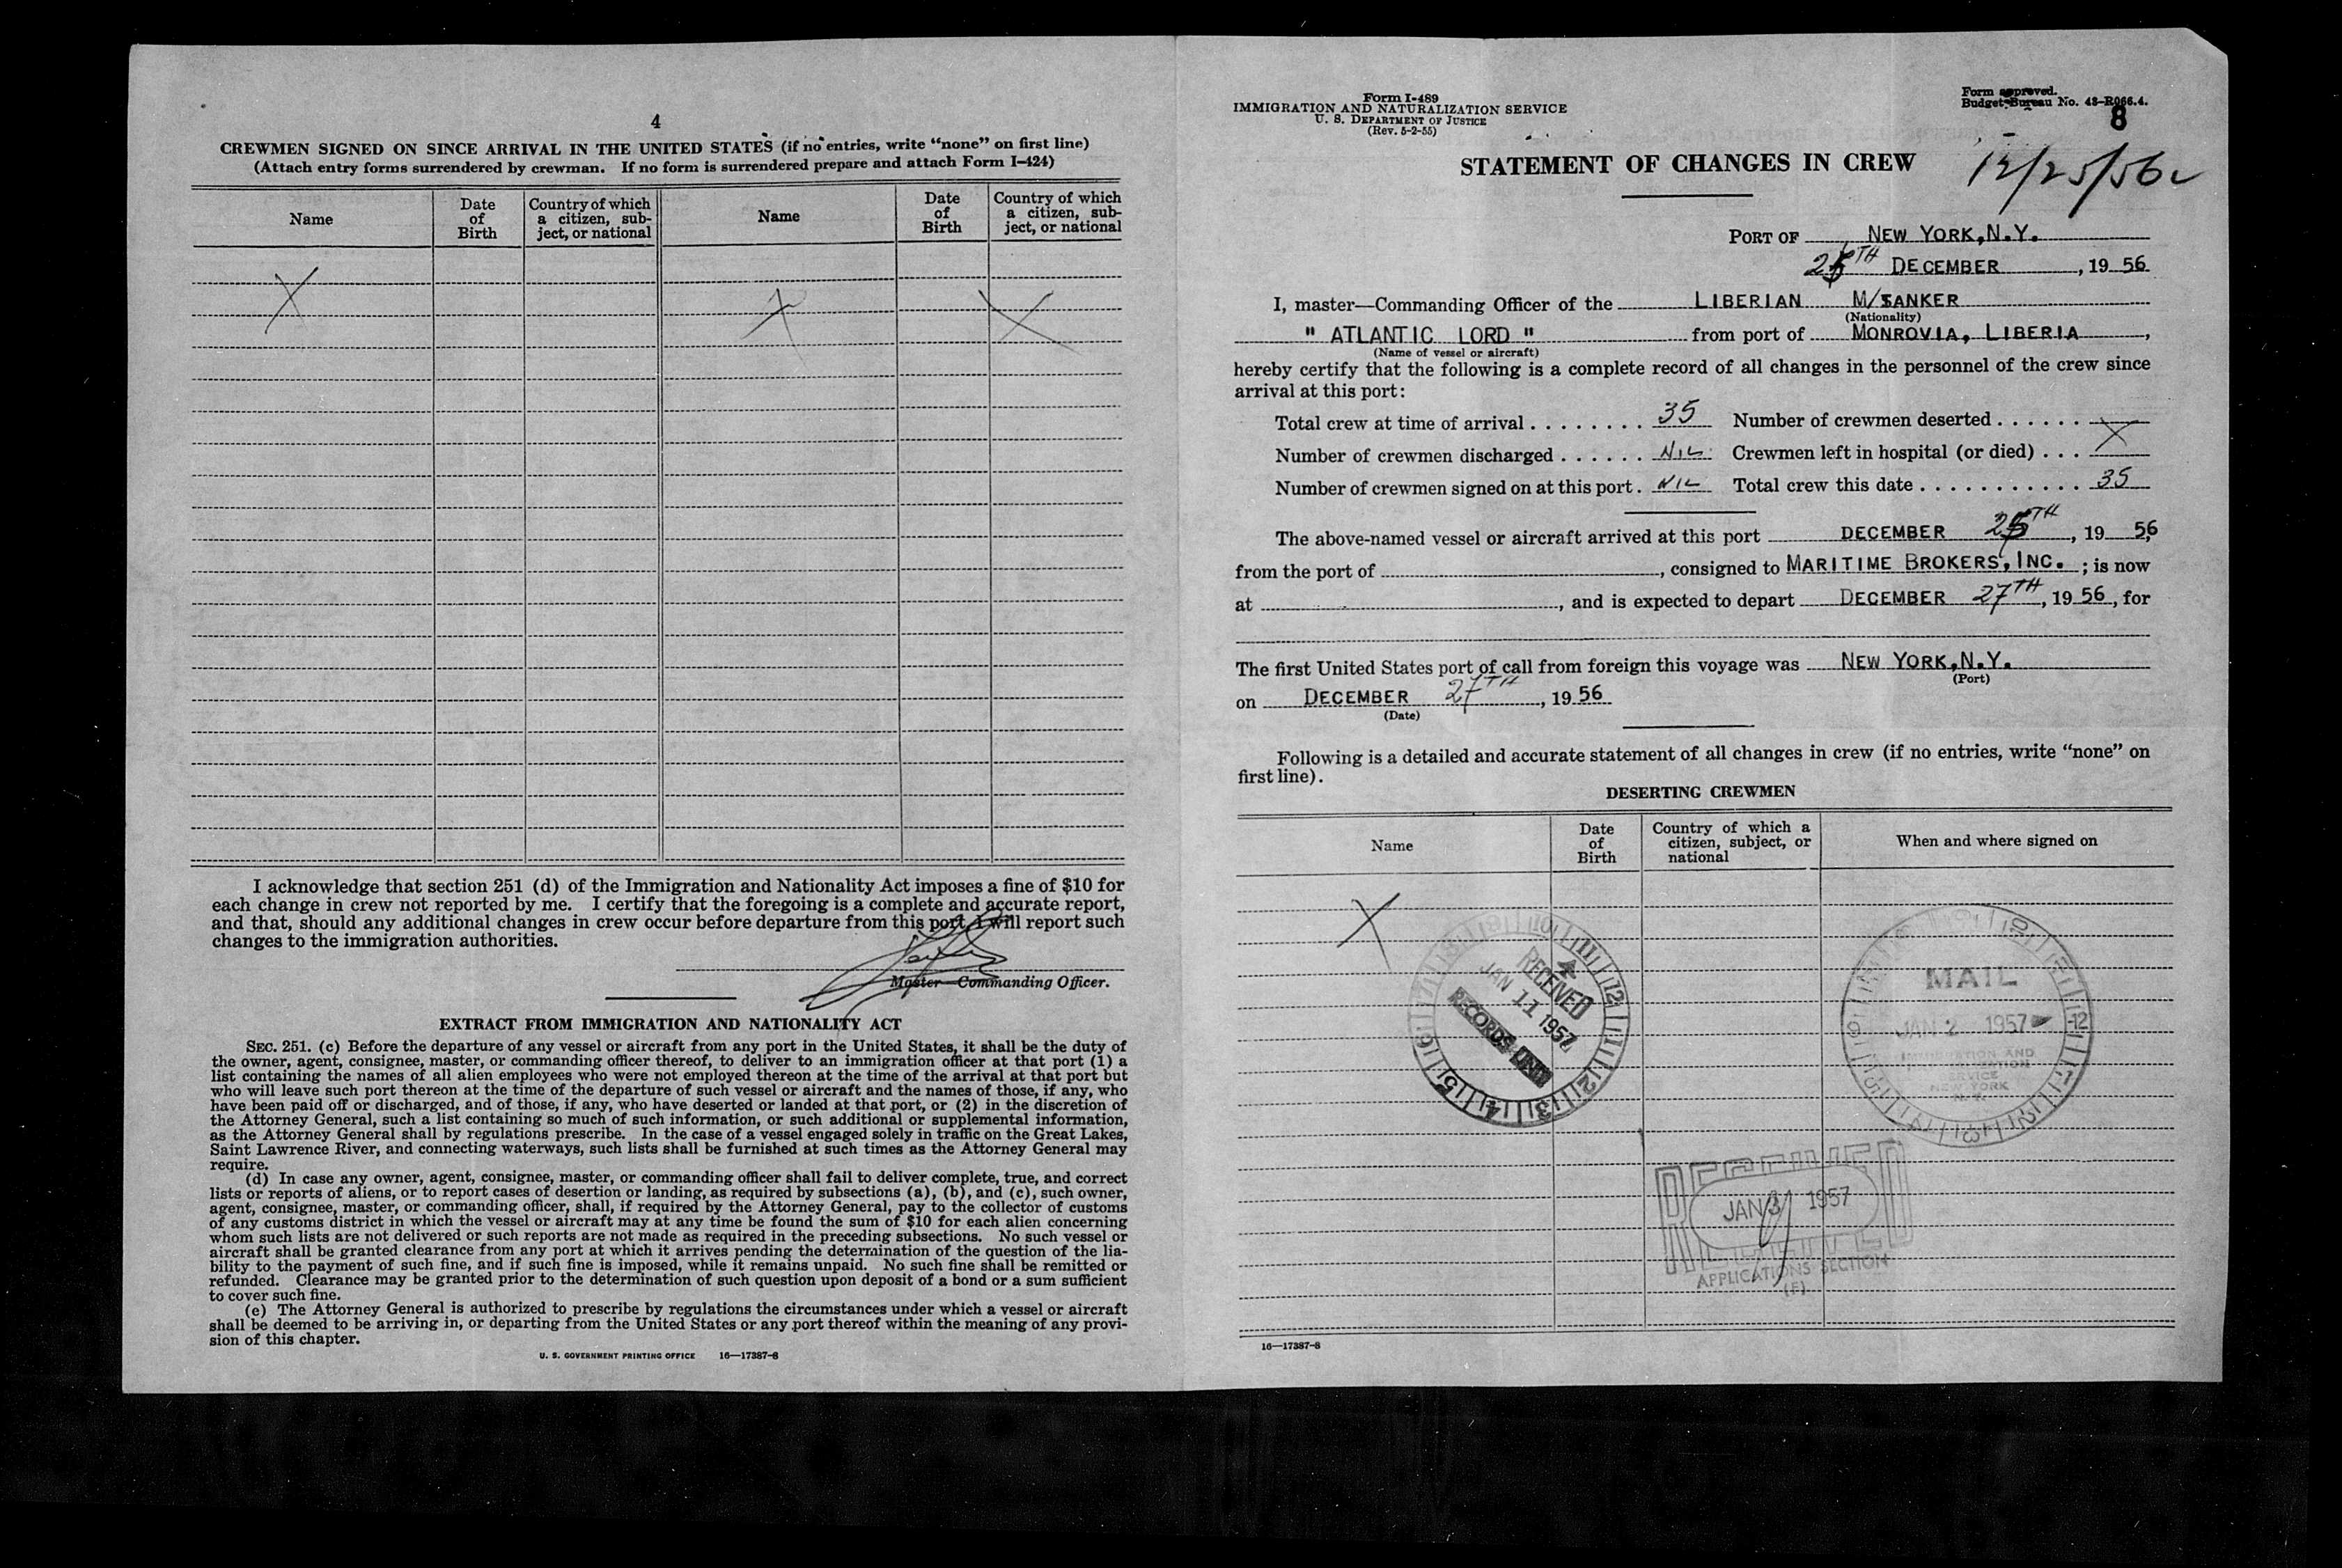 4
CREWMEN SIGNED ON SINCE ARRIVAL IN THE UNITED STATES (if no entries, write “none” on first line)
(Attach entry forms surrendered by crewman. If no form is surrendered prepare and attach Form I-424)
Name
Date
of
Birth
Country of which
a citizen, sub-
ject, or national
Name
Date
of
Birth
Country of which
a citizen, sub-
ject, or national
X
X
X
I acknowledge that section 251 (d) of the Immigration and Nationality Act imposes a fine of $10 for
each change in crew not reported by me. I certify that the foregoing is a complete and accurate report,
and that, should any additional changes in crew occur before departure from this port, I will report such
changes to the immigration authorities.
Master—Commanding Officer.
EXTRACT FROM IMMIGRATION AND NATIONALITY ACT
SEC. 251. (c) Before the departure of any vessel or aircraft from any port in the United States, it shall be the duty of
the owner, agent, consignee, master, or commanding officer thereof, to deliver to an immigration officer at that port (1) a
list containing the names of all alien employees who were not employed thereon at the time of the arrival at that port but
who will leave such port thereon at the time of the departure of such vessel or aircraft and the names of those, if any, who
have been paid off or discharged, and of those, if any, who have deserted or landed at that port, or (2) in the discretion of
the Attorney General, such a list containing so much of such information, or such additional or supplemental information,
as the Attorney General shall by regulations prescribe. In the case of a vessel engaged solely in traffic on the Great Lakes,
Saint Lawrence River, and connecting waterways, such lists shall be furnished at such times as the Attorney General may
require.
(d) In case any owner, agent, consignee, master, or commanding officer shall fail to deliver complete, true, and correct
lists or reports of aliens, or to report cases of desertion or landing, as required by subsections (a), (b), and (c), such owner,
agent, consignee, master, or commanding officer, shall, if required by the Attorney General, pay to the collector of customs
of any customs district in which the vessel or aircraft may at any time be found the sum of $10 for each alien concerning
whom such lists are not delivered or such reports are not made as required in the preceding subsections. No such vessel or
aircraft shall be granted clearance from any port at which it arrives pending the determination of the question of the lia-
bility to the payment of such fine, and if such fine is imposed, while it remains unpaid. No such fine shall be remitted or
refunded. Clearance may be granted prior to the determination of such question upon deposit of a bond or a sum sufficient
to cover such fine.
(e) The Attorney General is authorized to prescribe by regulations the circumstances under which a vessel or aircraft
shall be deemed to be arriving in, or departing from the United States or any port thereof within the meaning of any provi-
sion of this chapter.
U. S. GOVERNMENT PRINTING OFFICE 16—17387-8
Form I-489
IMMIGRATION AND NATURALIZATION SERVICE
U. S. DEPARTMENT OF JUSTICE
(Rev. 5-2-55)
Form approved.
Budget Bureau No. 43-R066.4.
8
STATEMENT OF CHANGES IN CREW
12/25/56
PORT OF NEW YORK, N.Y.
TH DECEMBER, 19 56
I, master—Commanding Officer of the LIBERIAN M/TANKER
(Nationality)
" ATLANTIC LORD " from port of MONROVIA, LIBERIA,
(Name of vessel or aircraft)
hereby certify that the following is a complete record of all changes in the personnel of the crew since
arrival at this port:
Total crew at time of arrival ........ 35 Number of crewmen deserted ......
Number of crewmen discharged ...... NIL Crewmen left in hospital (or died) ... X
Number of crewmen signed on at this port. NIL Total crew this date ........... 35
The above-named vessel or aircraft arrived at this port DECEMBER TH, 19 56
from the port of , consigned to MARITIME BROKERS, INC. ; is now
at , and is expected to depart DECEMBER 27TH, 19 56, for
The first United States port of call from foreign this voyage was NEW YORK, N.Y.
(Port)
on DECEMBER 27TH, 19 56
(Date)
Following is a detailed and accurate statement of all changes in crew (if no entries, write “none” on
first line).
DESERTING CREWMEN
Name
Date
of
Birth
Country of which a
citizen, subject, or
national
When and where signed on
X
RECEIVED
JAN 11 1957
RECORDS UNIT
MAIL
JAN 2 1957
IMMIGRATION AND
NATURALIZATION
SERVICE
NEW YORK
N.Y.
RECEIVED
JAN 3 1957
RECEIVED
APPLICATIONS SECTION
(F)
16—17387-8